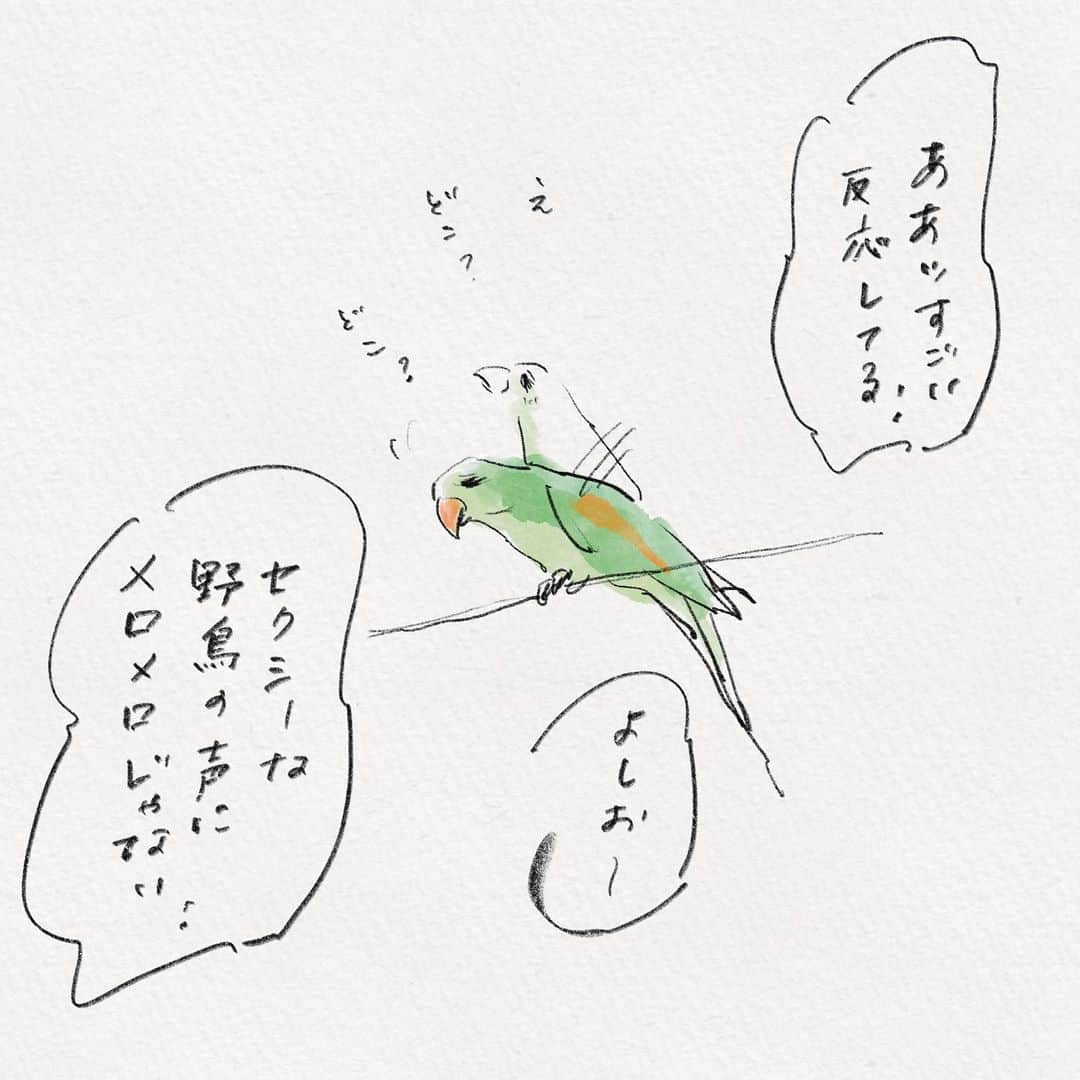 ああッすごい
反応してる!
え
どこ?
どこ?
セクシーな
野鳥の声に
メロメロじゃない!
よしお〜